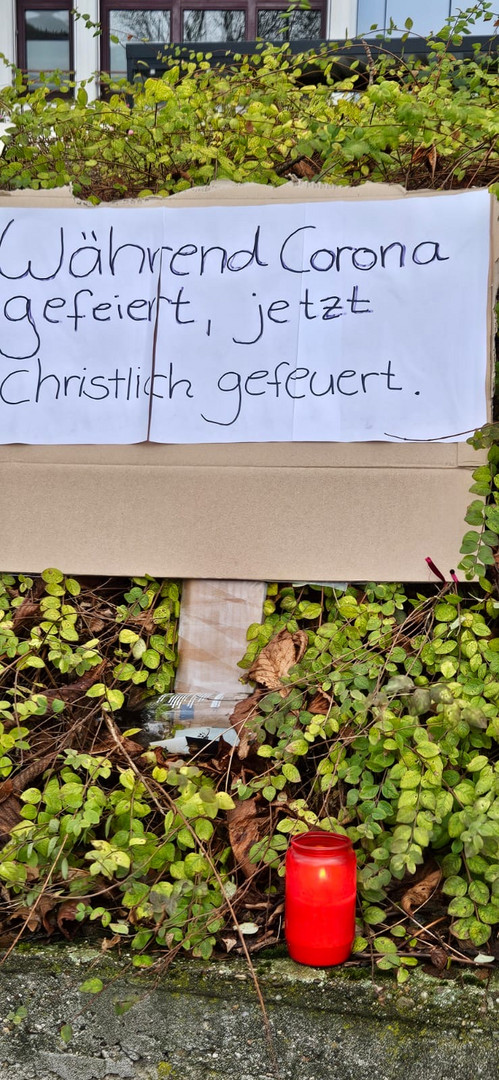 Während Corona
gefeiert, jetzt
christlich gefeuert.